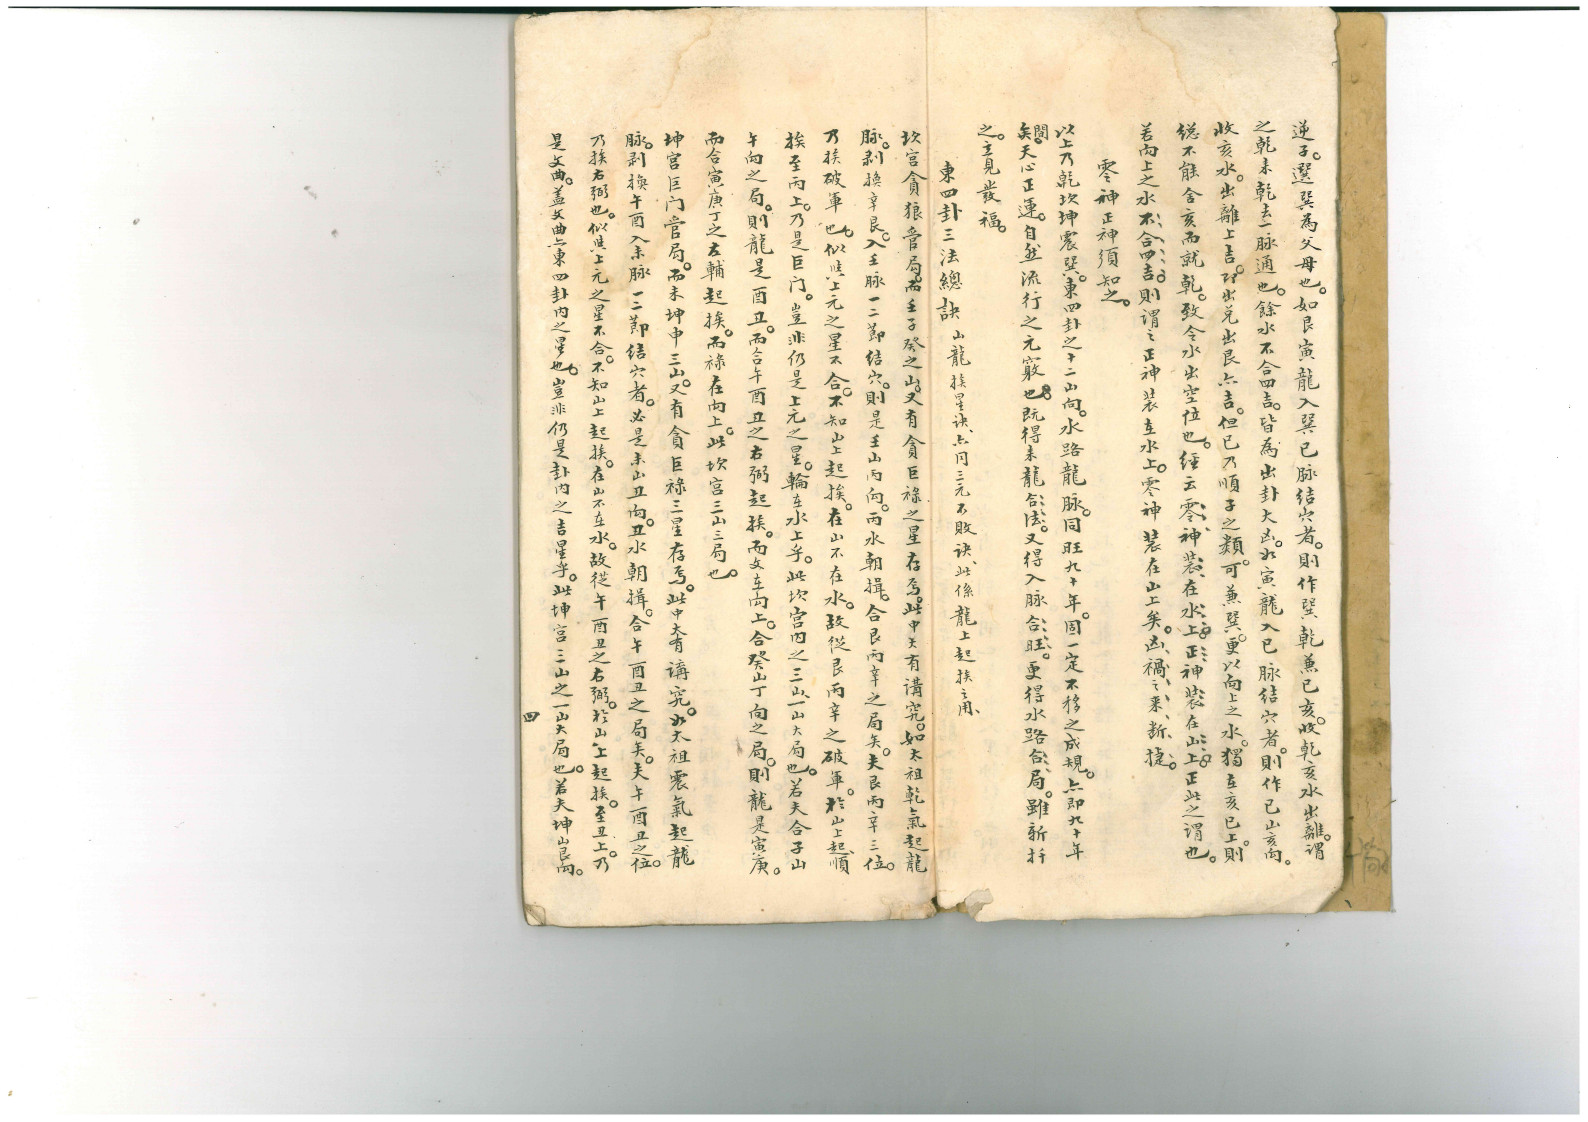 逆子。選巽為父母也。如艮寅龍入巽巳脉結穴者。則作巽乾兼巳亥。收乾亥水出離。謂
之乾来乾去一脉通也。餘水不合四吉。皆為出卦大凶。如寅龍入巳脉結穴者。則作巳山亥向。
收亥水。出離上吉。即出兑出艮亦吉。但巳乃順子之類。可兼巽。更以向上之水。獨在亥巳上。則
総不能舍亥而就乾。致令水出空位也。経云零神装在水上。正神装在山上。正此之謂也。
若向上之水不合四吉。則謂之正神装在水上。零神装在山上矣。凶禍之来斷捷。
零神正神須知之。
以上乃乾坎坤震巽。東四卦之十二山向。水路龍脉。同旺九十年。固一定不移之成規。亦即九十年
間矣。天心正運。自然流行之元竅也。既得来龍合法。又得入脉合旺。更得水路合局。雖新扦
之。立見發福。
東四卦三法總訣 山龍挨星訣、亦同三元不敗訣、此係龍上起挨之用、
坎宫貪狼管局。而壬子癸之山。又有貪巨祿之星存焉。此中大有講究。如太祖乾氣起龍
脉。剥換辛艮。入壬脉一二節結穴。則是壬山丙向。丙水朝揖。合艮丙辛之局矣。夫艮丙辛三位。
乃挨破軍也。似與上元之星不合。不知山上起挨。在山不在水。故從艮丙辛之破軍。於山上起順
挨至丙上。乃是巨门。豈非仍是上元之星。輪在水上乎。此坎宫内之三山、一山大局也。若夫合子山
午向之局。則龍是酉丑。而合午酉丑之右弼起挨。而文在向上。合癸山丁向之局。則龍是寅庚。
而合寅庚丁之左輔起挨。而祿在向上。此坎宫三山三局也。
坤宫巨门管局。而未坤申三山。又有貪巨祿三星存焉。此中大有講究。如太祖震氣起龍
脉。剥換午酉入未脉一二節結穴者。必是未山丑向。丑水朝揖。合午酉丑之局矣。夫午酉丑之位。
乃挨右弼也。似與上元之星不合。不知山上起挨。在山不在水。故從午酉丑之右弼。於山上起挨。至丑上。乃
是文曲。盖文曲亦東四卦内之星也。豈非仍是卦内之吉星乎。此坤宫三山之一山大局也。若夫坤山艮向。
四